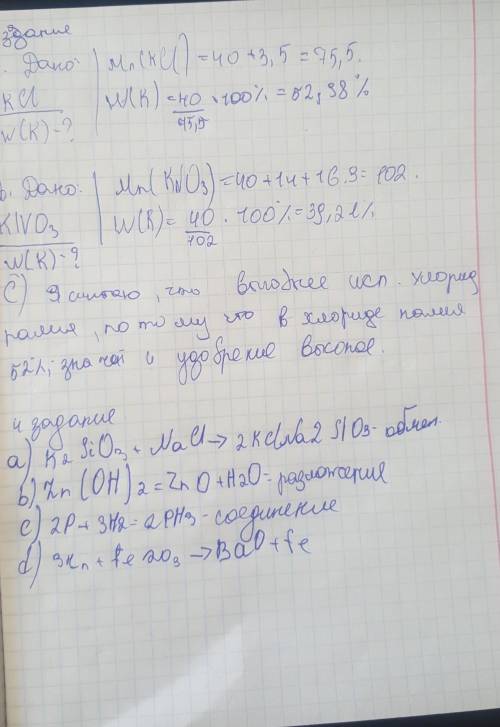 задание
. Дано:
Mr(KCl) = 40 + 3,5 = 75,5.
KCl
W(K) = 40/75,5 · 100% = 52,98%
W(K) - ?
b. Дано:
Mr(KNO3) = 40 + 14 + 16.3 = 102.
KNO3
W(K) = 40/102 · 100% = 39,21%
W(K) - ?
C) Я считаю, что выгоднее исп. хлорид
калия, потому что в хлориде калия
52%, значит и удобрение высокое.
4 задание
a) K2SiO3 + NaCl → 2KClNa2SiO3 - обмен.
b) Zn(OH)2 = ZnO + H2O - разложения
c) 2P + 3H2 = 2PH3 - соединение
d) 3Zn + Fe2O3 → BaO + Fe